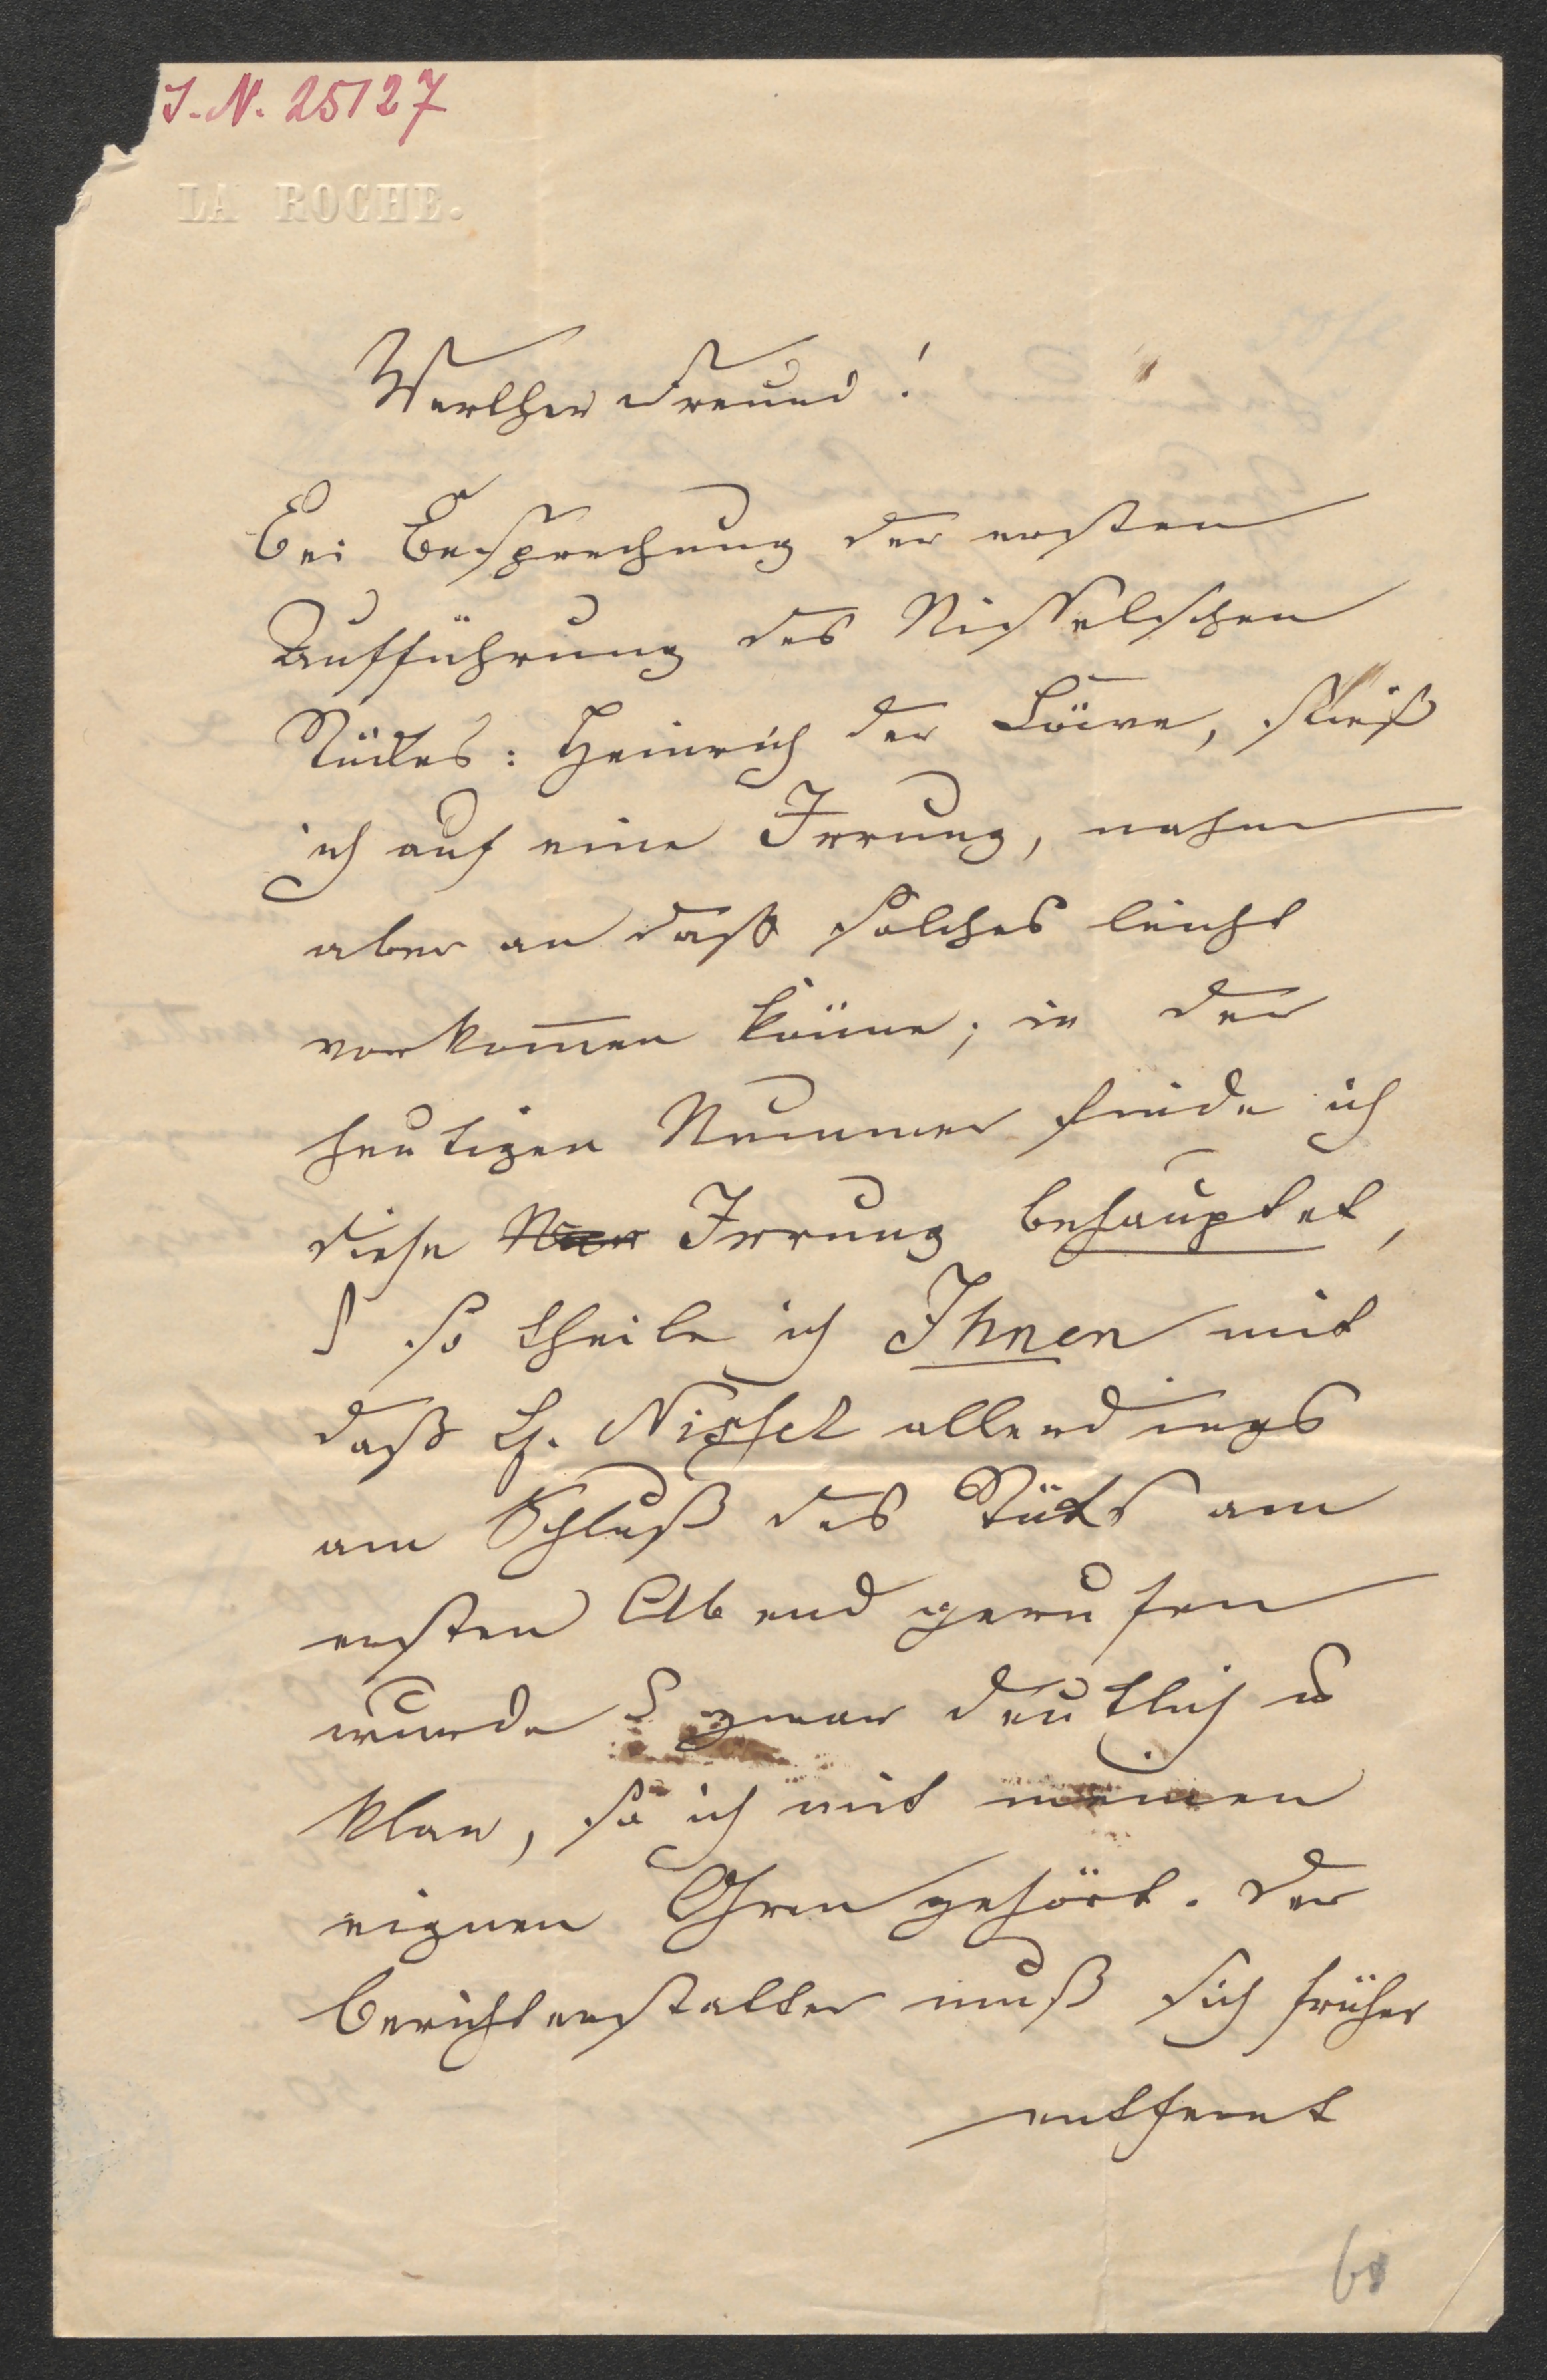 J. N. 25127
LA ROCHE.
Werther Freund!
Bei Besprechung der ersten
Aufführung des Nisselschen
Stückes: Heinrich der Löwe, stieß
ich auf eine Irrung, nahm
aber an daß solches leicht
vorkom̅en könne; in der
heutigen Nummer finde ich
diese Irrung behauptet,
so theile ich Ihnen mit
daß H. Nissel allerdings
am Schluß des Stücks am
ersten Abend gerufen
wurde & zwar deutlich u
klar, so ich mit meinen
eignen Ohren gehört. Der
Berichterstatter muß sich früher
entfernt